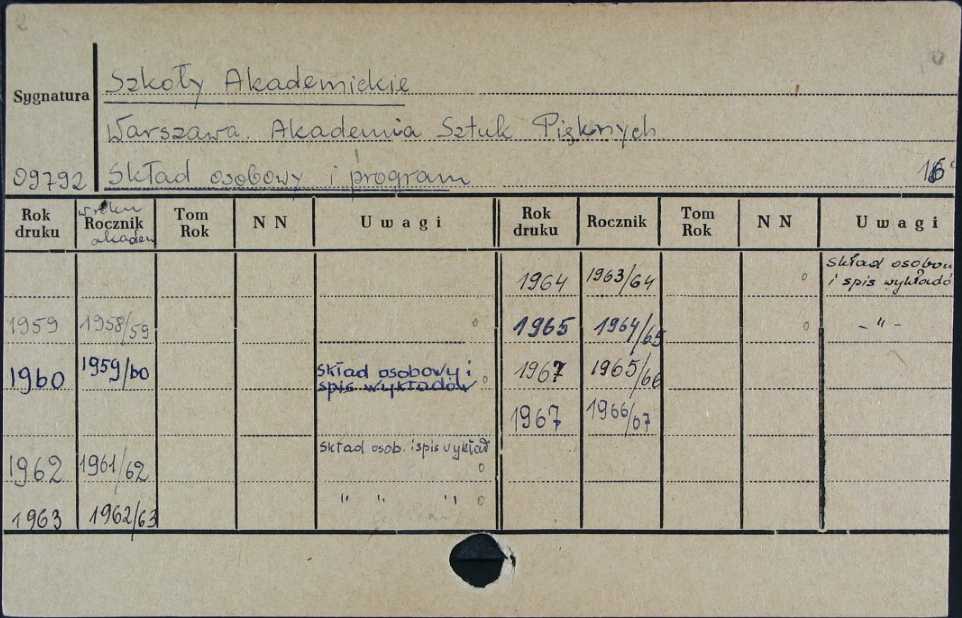 2
Szkoły Akademickie
Sygnatura
Warszawa. Akademia Sztuk Pięknych
09792 Skład osobowy i program
Rok druku w roku Rocznik akadem Tom Rok N N Uwagi Rok druku Rocznik Tom Rok N N Uwagi
1964 1963/64 o Skład osobow
i spis wykładó
1959 1958/59 o 1965 1964/65 o - " -
1960 1959/60 Skład osobowy i
spis wykładów o 1967 1965/66
1967 1966/67
1962 1961/62 Skład osob. i spis wykład o
1963 1962/63 " " " o